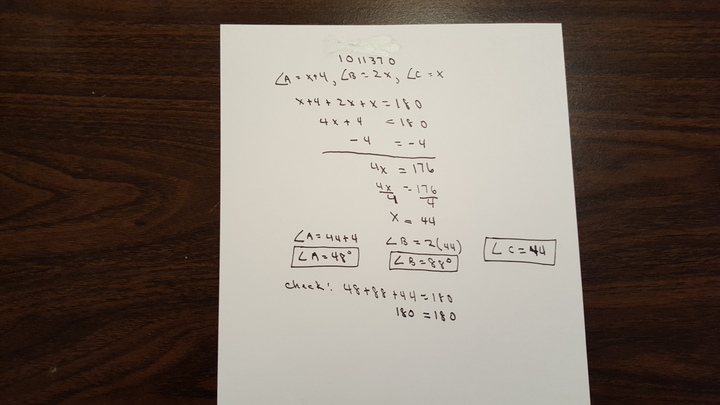 1011370
∠A = x+4, ∠B = 2x, ∠C = x
x+4+2x+x=180
4x+4 =180
-4 = -4
4x = 176
4x/4 = 176/4
x = 44
∠A=44+4 ∠B=2(44) ∠C=44
∠A=48° ∠B=88°
check: 48+88+44=180
180 =180